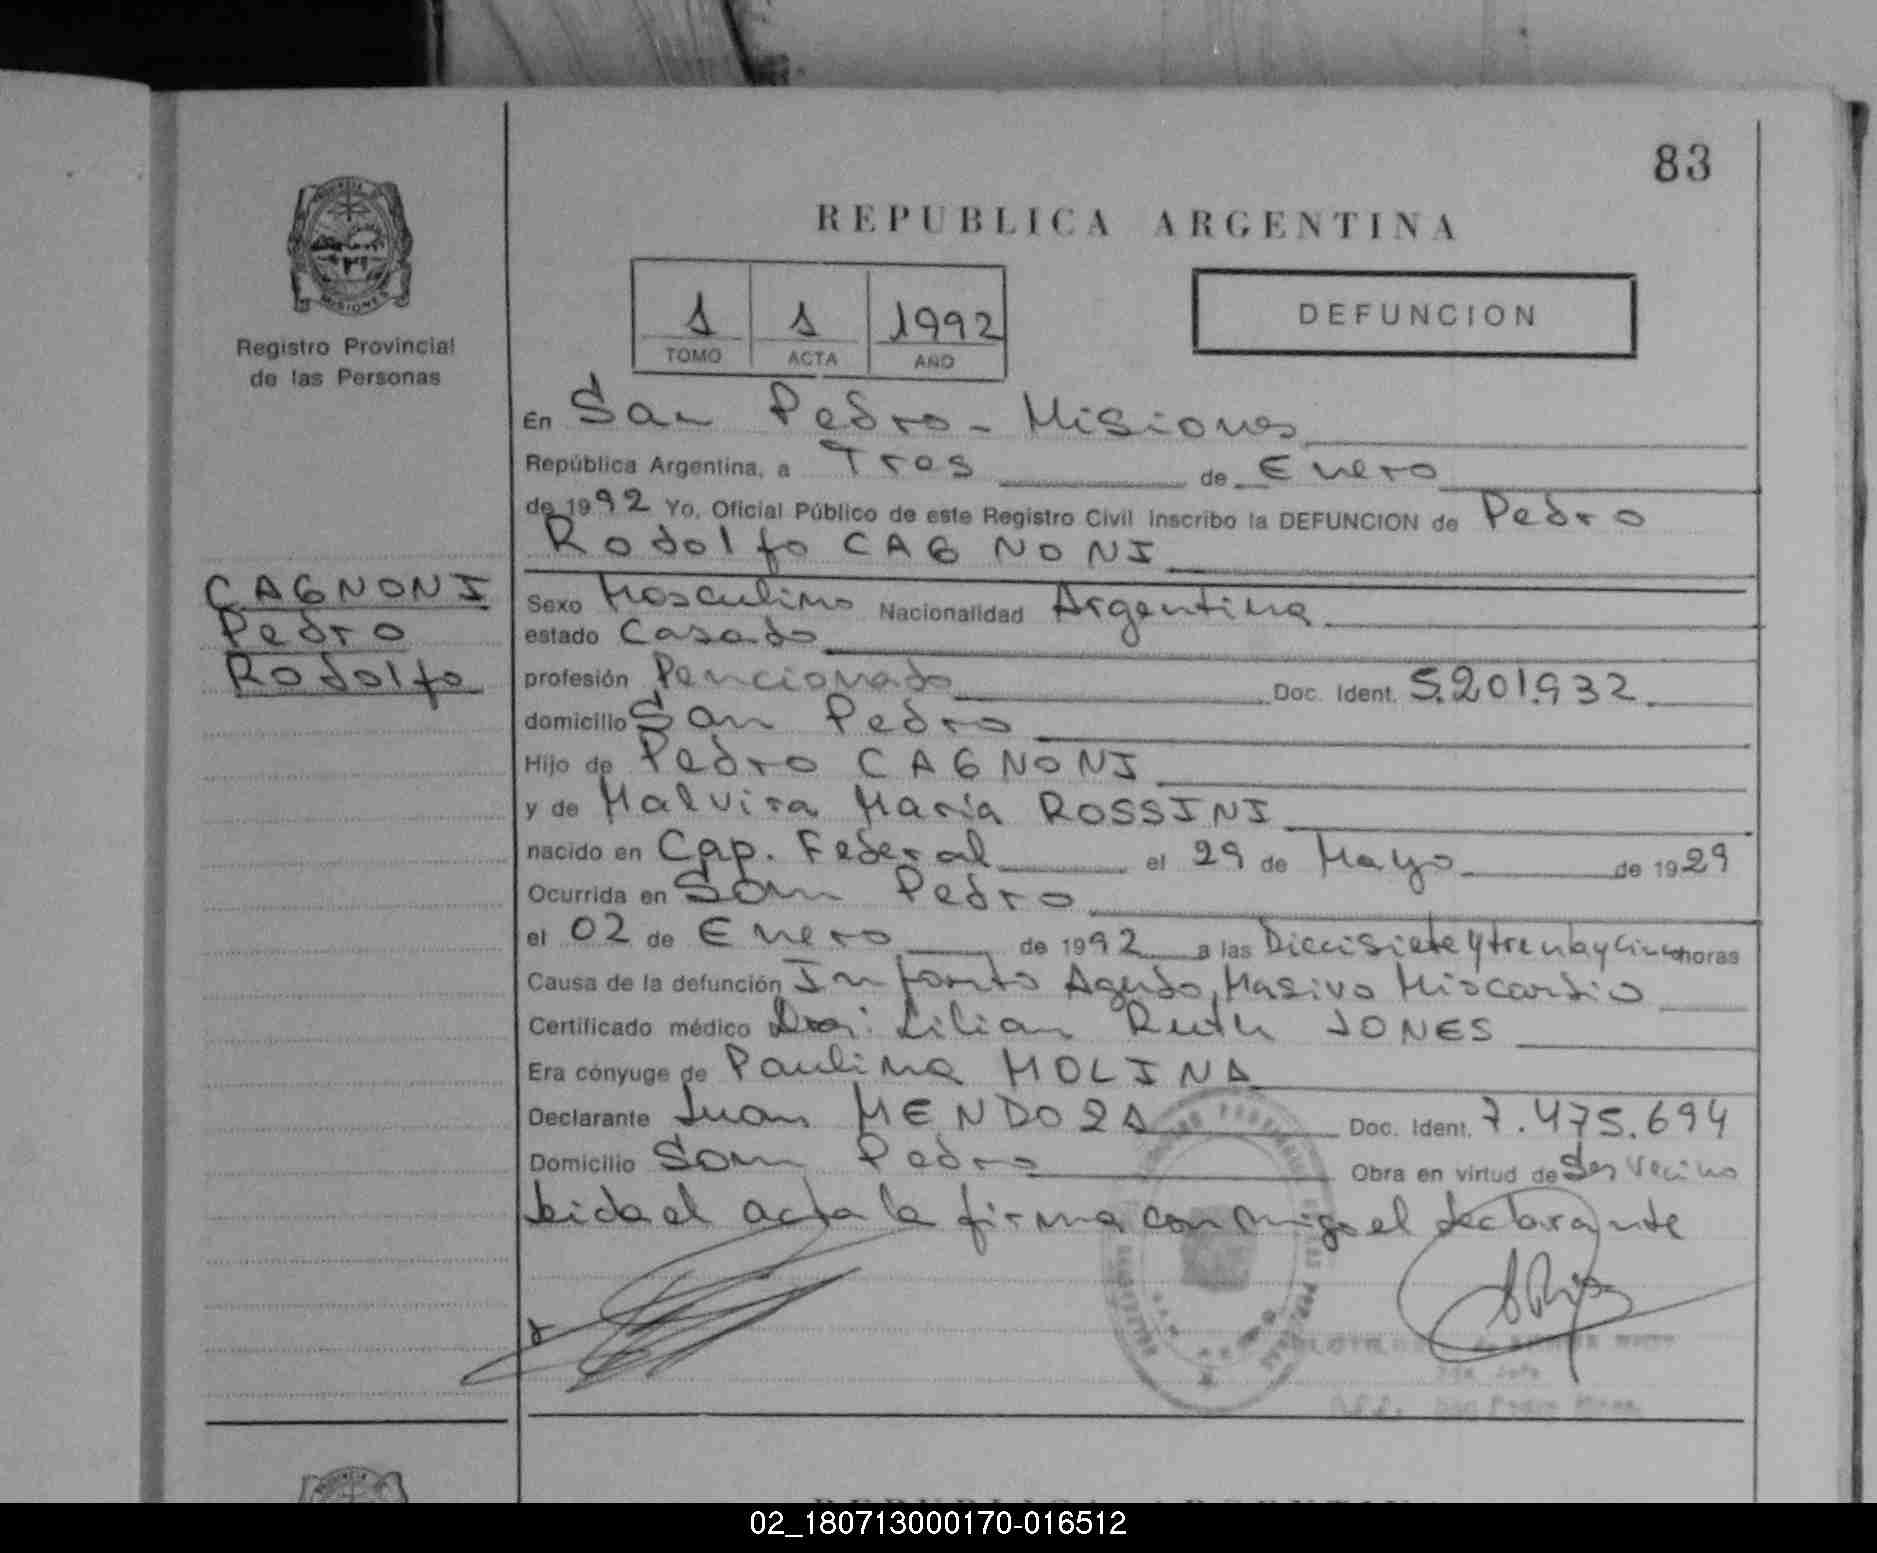 83
REPUBLICA ARGENTINA
1 1 1992
TOMO ACTA AÑO
DEFUNCION
Registro Provincial
de las Personas
CAGNONI
Pedro
Rodolfo
En San Pedro - Misiones
República Argentina, a Tres de Enero
de 1992 Yo, Oficial Público de este Registro Civil Inscribo la DEFUNCION de Pedro
Rodolfo CAGNONI
Sexo Masculino Nacionalidad Argentina
estado Casado
profesión Pencionado Doc. Ident. 5.201.932
domicilio San Pedro
Hijo de Pedro CAGNONI
y de Malvira María ROSSINI
nacido en Cap. Federal el 29 de Mayo de 1929
Ocurrida en San Pedro
el 02 de Enero de 1992 a las Diecisiete y treinta y cinco horas
Causa de la defunción Infarto Agudo Masivo Miocardio
Certificado médico Dra: Lilian Ruth JONES
Era cónyuge de Paulina MOLINA
Declarante Juan MENDOZA Doc. Ident. 7.475.694
Domicilio San Pedro Obra en virtud de Ser vecino
Leida el acta la firma conmigo el declarante
02_180713000170-016512